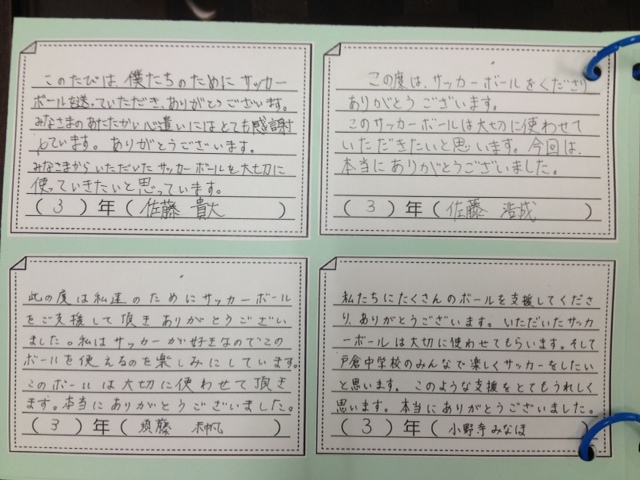 このたびは、僕たちのためにサッカー
ボールを送っていただき、ありがとうございます。
みなさまのあたたかい心遣いにはとても感謝
しています。ありがとうございます。
みなさまからいただいたサッカーボールを大切に
使っていきたいと思っています。
(3)年(佐藤 貴大)
この度は、サッカーボールをくださり
ありがとうございます。
このサッカーボールは大切に使わせて
いただきたいと思います。今回は、
本当にありがとうございました。
(3)年(佐藤 浩成)
此の度は私達のためにサッカーボール
をご支援して頂きありがとうござい
ました。私はサッカーが好きなのでこの
ボールを使えるのを楽しみにしています。
このボールは大切に使わせて頂き
ます。本当にありがとうございました。
(3)年(須藤)
私たちにたくさんのボールを支援してくださ
り、ありがとうございます。いただいたサッカ
ーボールは大切に使わせてもらいます。そして
戸倉中学校のみんなで楽しくサッカーをしたい
と思います。このような支援をとてもうれしく
思います。本当にありがとうございました。
(3)年(小野寺みなほ)